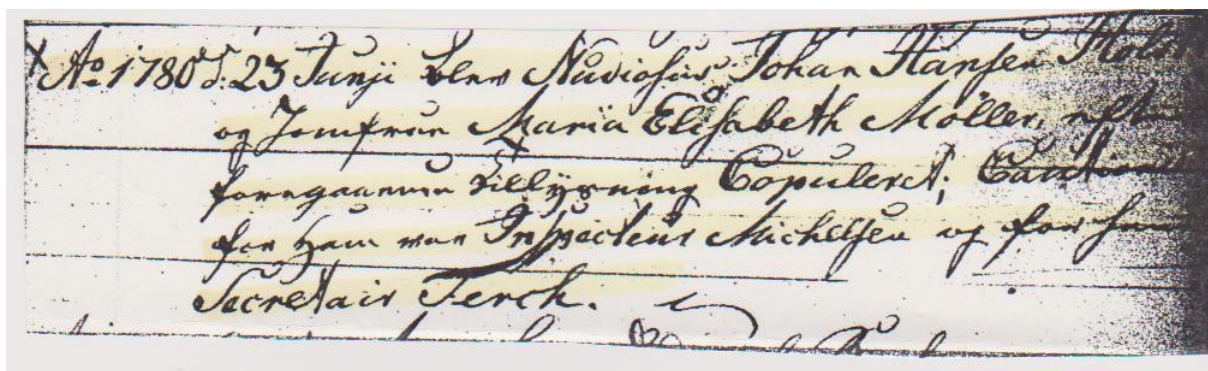 Ao 1780 d: 23 Junji blev Studiosus Johan Hansen
og Jomfrue Maria Elisabeth Møller, eft
foregaaende tillysning Copuleret; Caution
for ham var Inspecteur Michelsen og for hen
Secretair Ferch.